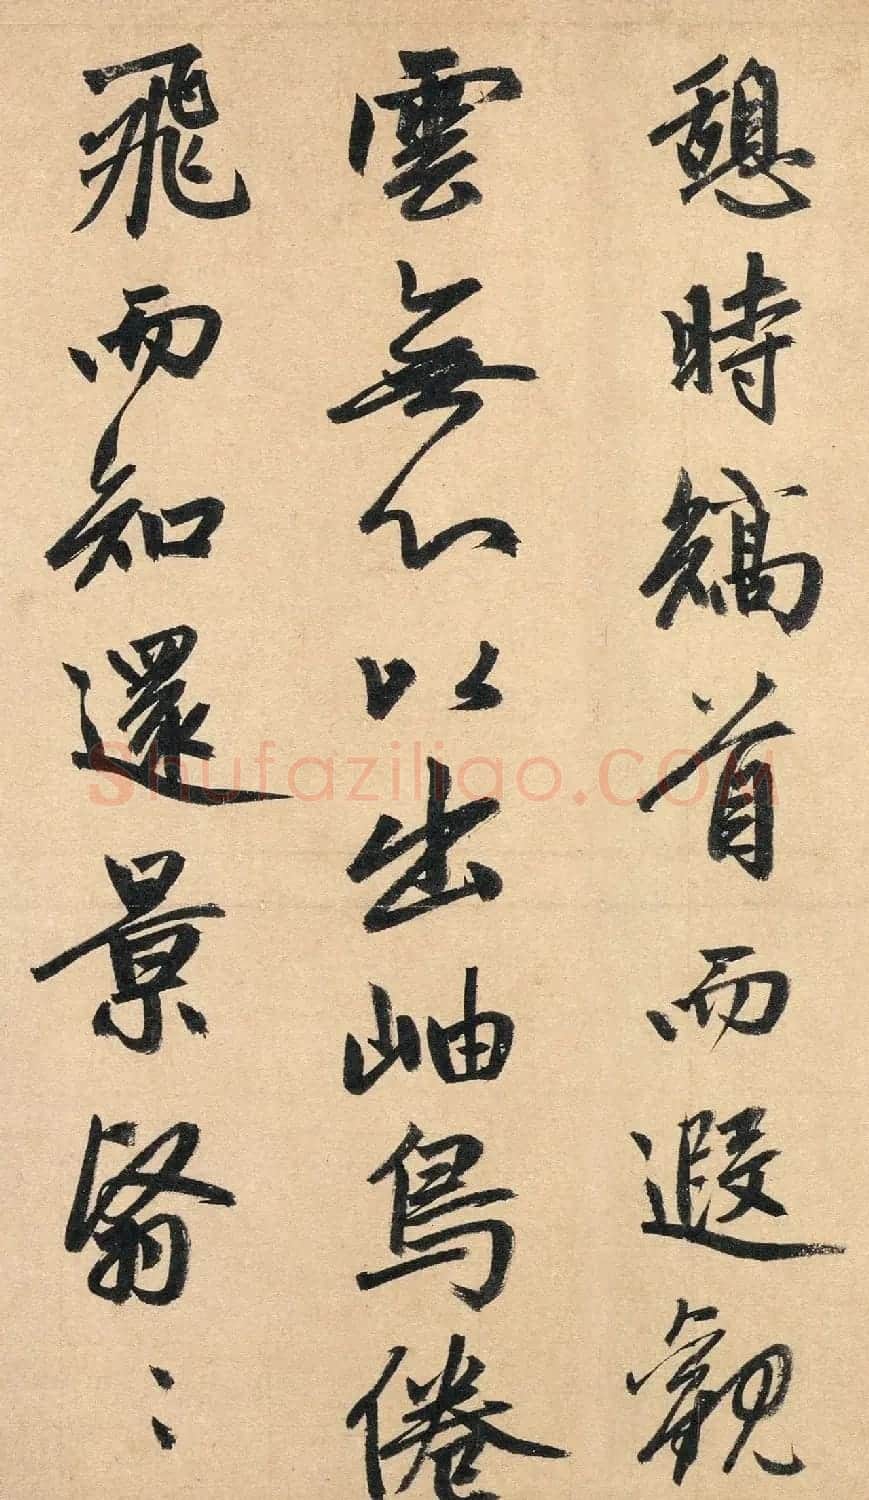 憩時矯首而遐觀
雲無心以出岫鳥倦
飛而知還景翳〻
Shufaziliao.COM